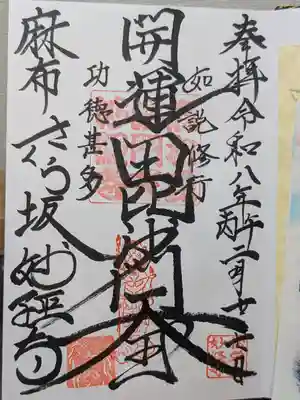 奉拝 令和八年丙午二月廿一日
如説修行
開運毘沙門天
功徳甚多
麻布さくら坂妙経寺